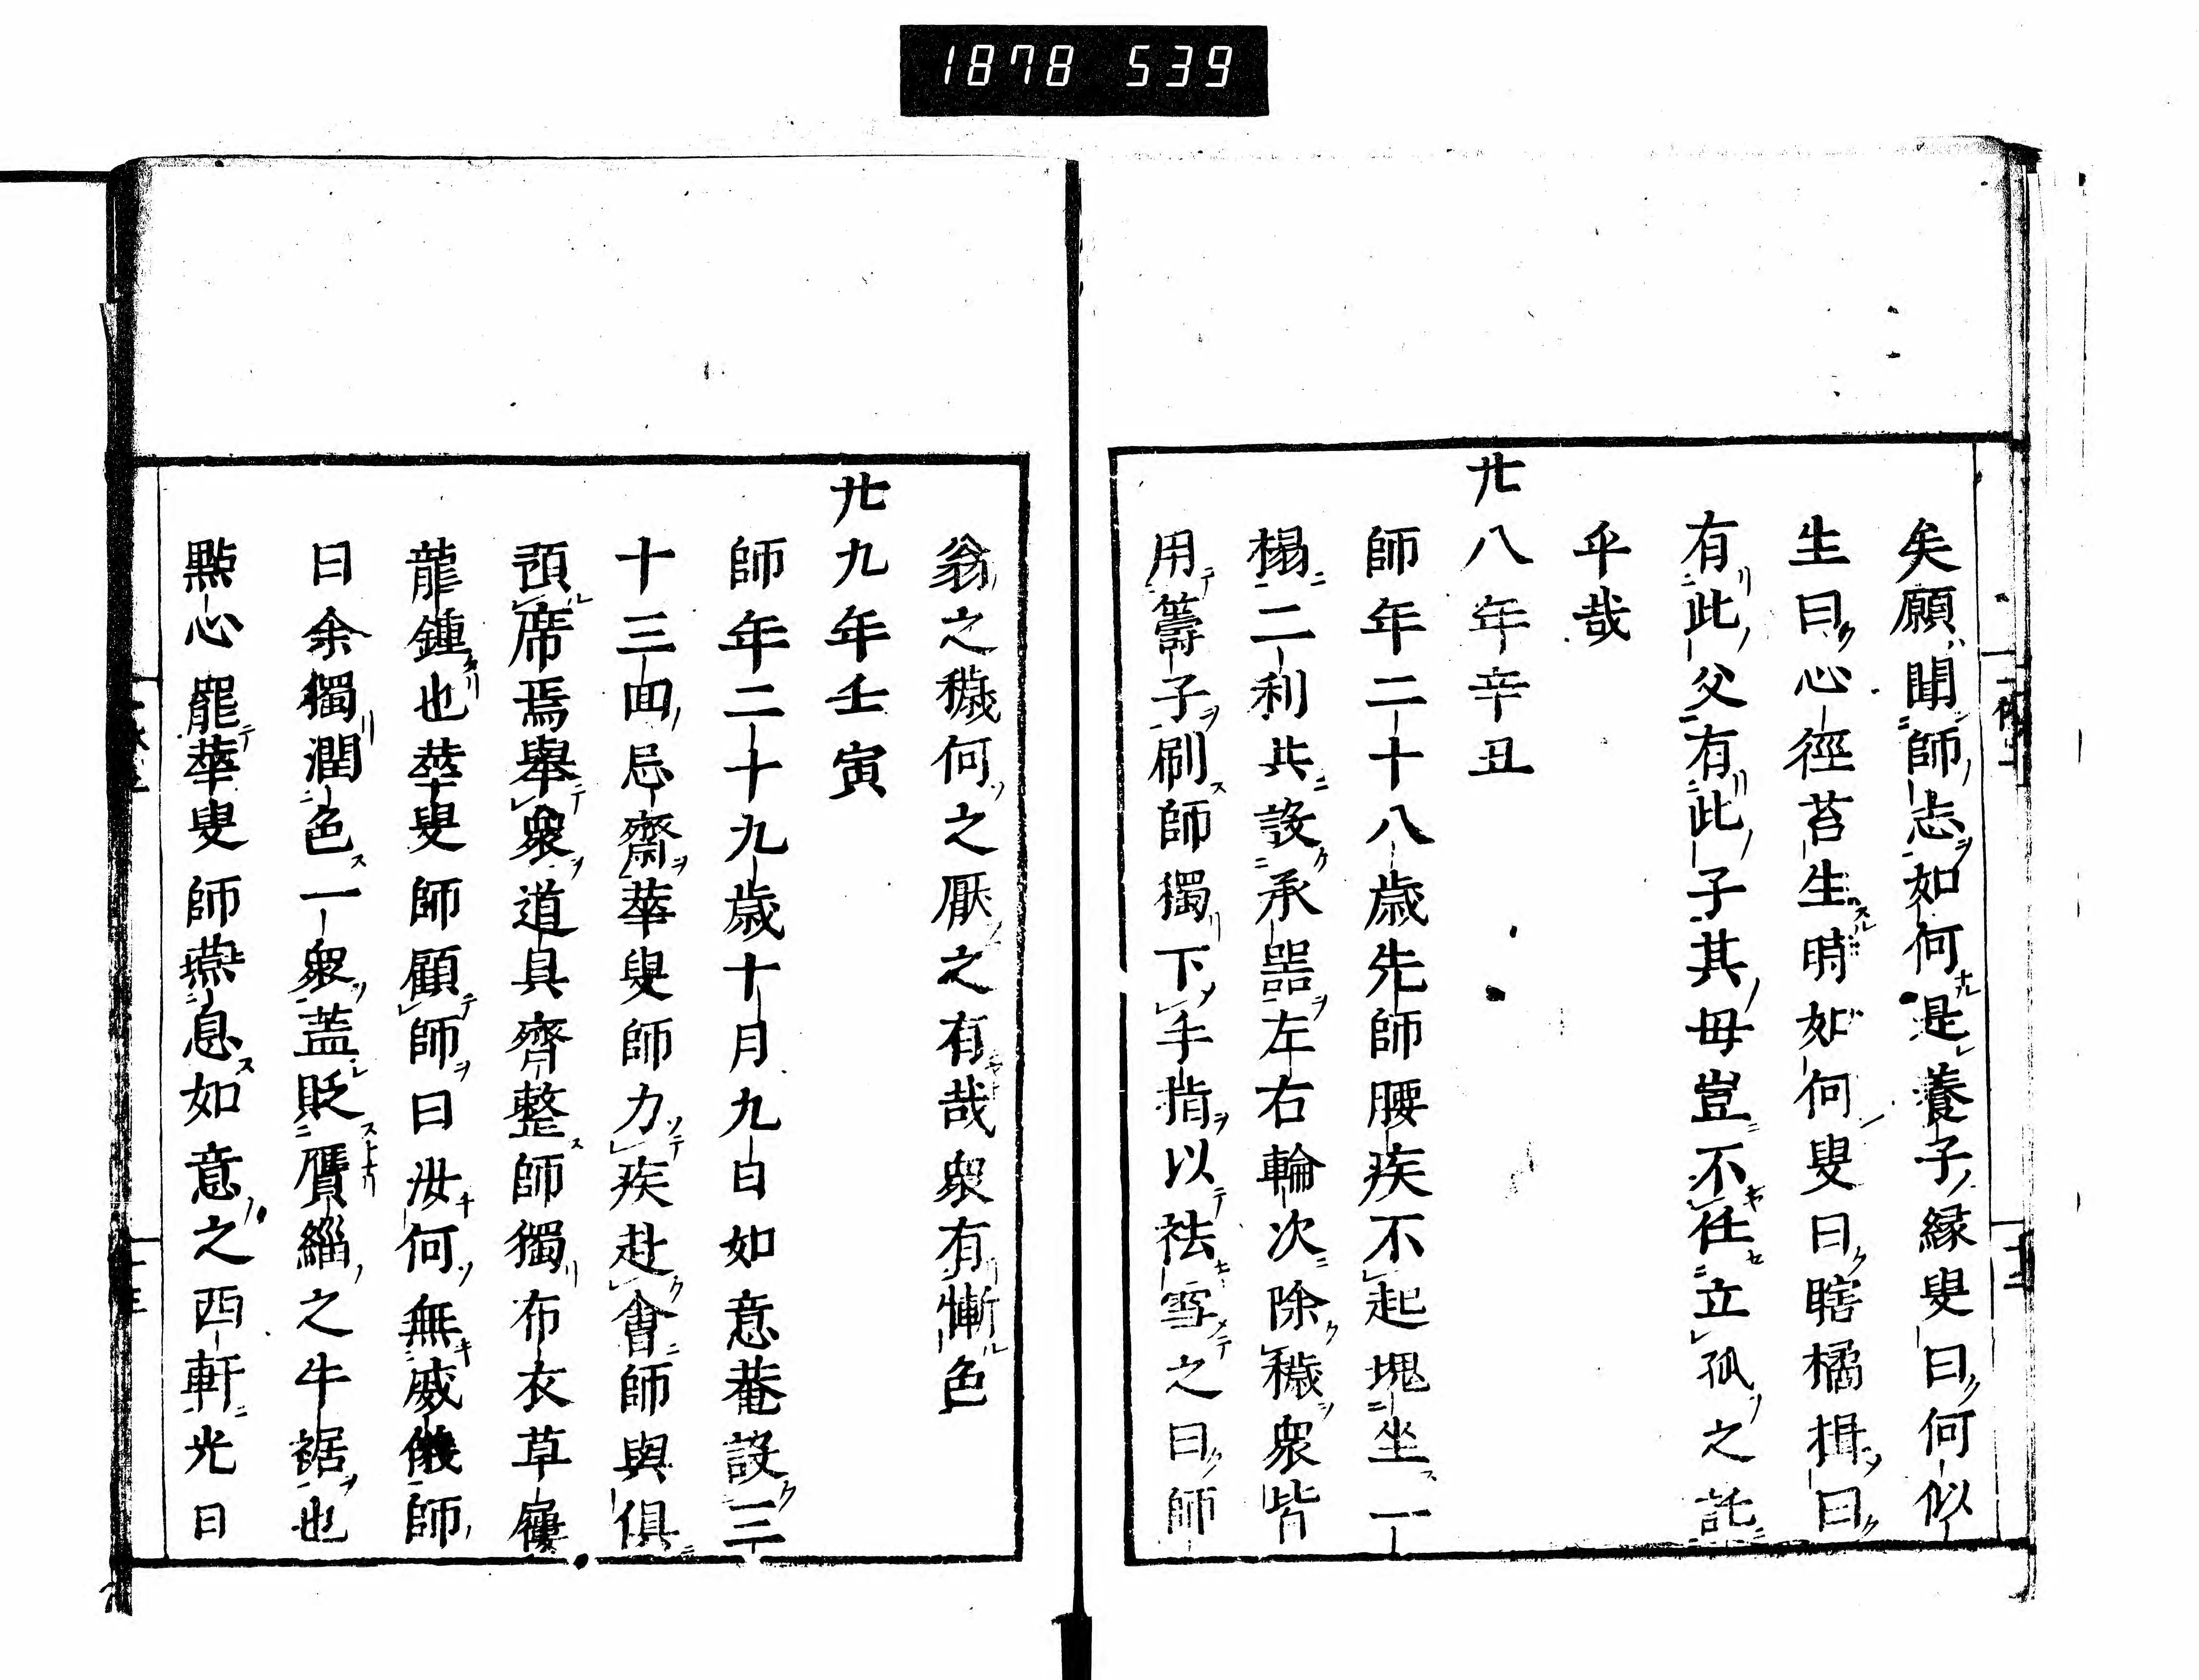 1878 539
矣願聞師志如何是養子縁叟曰何似
生曰心徑苔生生時如何叟曰瞎橘揖曰
有此父有此子其母豈不任立孤之託
乎哉
廿八年辛丑
師年二十八歳先師腰疾不起塊坐一
榻二利共設承器左右輪次除穢衆皆
用籌子刷師獨下手指以祛雪之曰師
翁之穢何之厭之有哉衆有慚色
廿九年壬寅
師年二十九歳十月九日如意菴設三
十三回忌齋華叟師力疾赴會師與俱
預席焉舉衆道具齊整師獨布衣草屨
龍鍾也華叟師顧師曰汝何無威儀師
曰余獨潤色一衆蓋貶贋緇之牛裾也
點心罷華叟師燕息如意之西軒光日